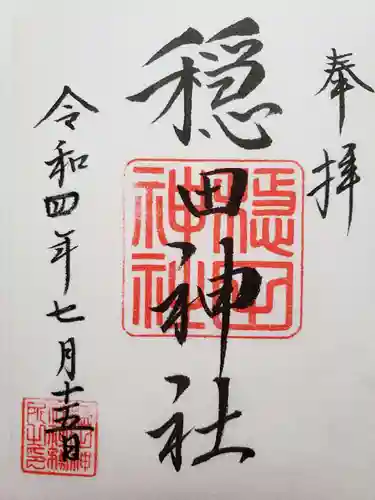 奉拝
穏田神社
穏田神社
令和四年七月十五日